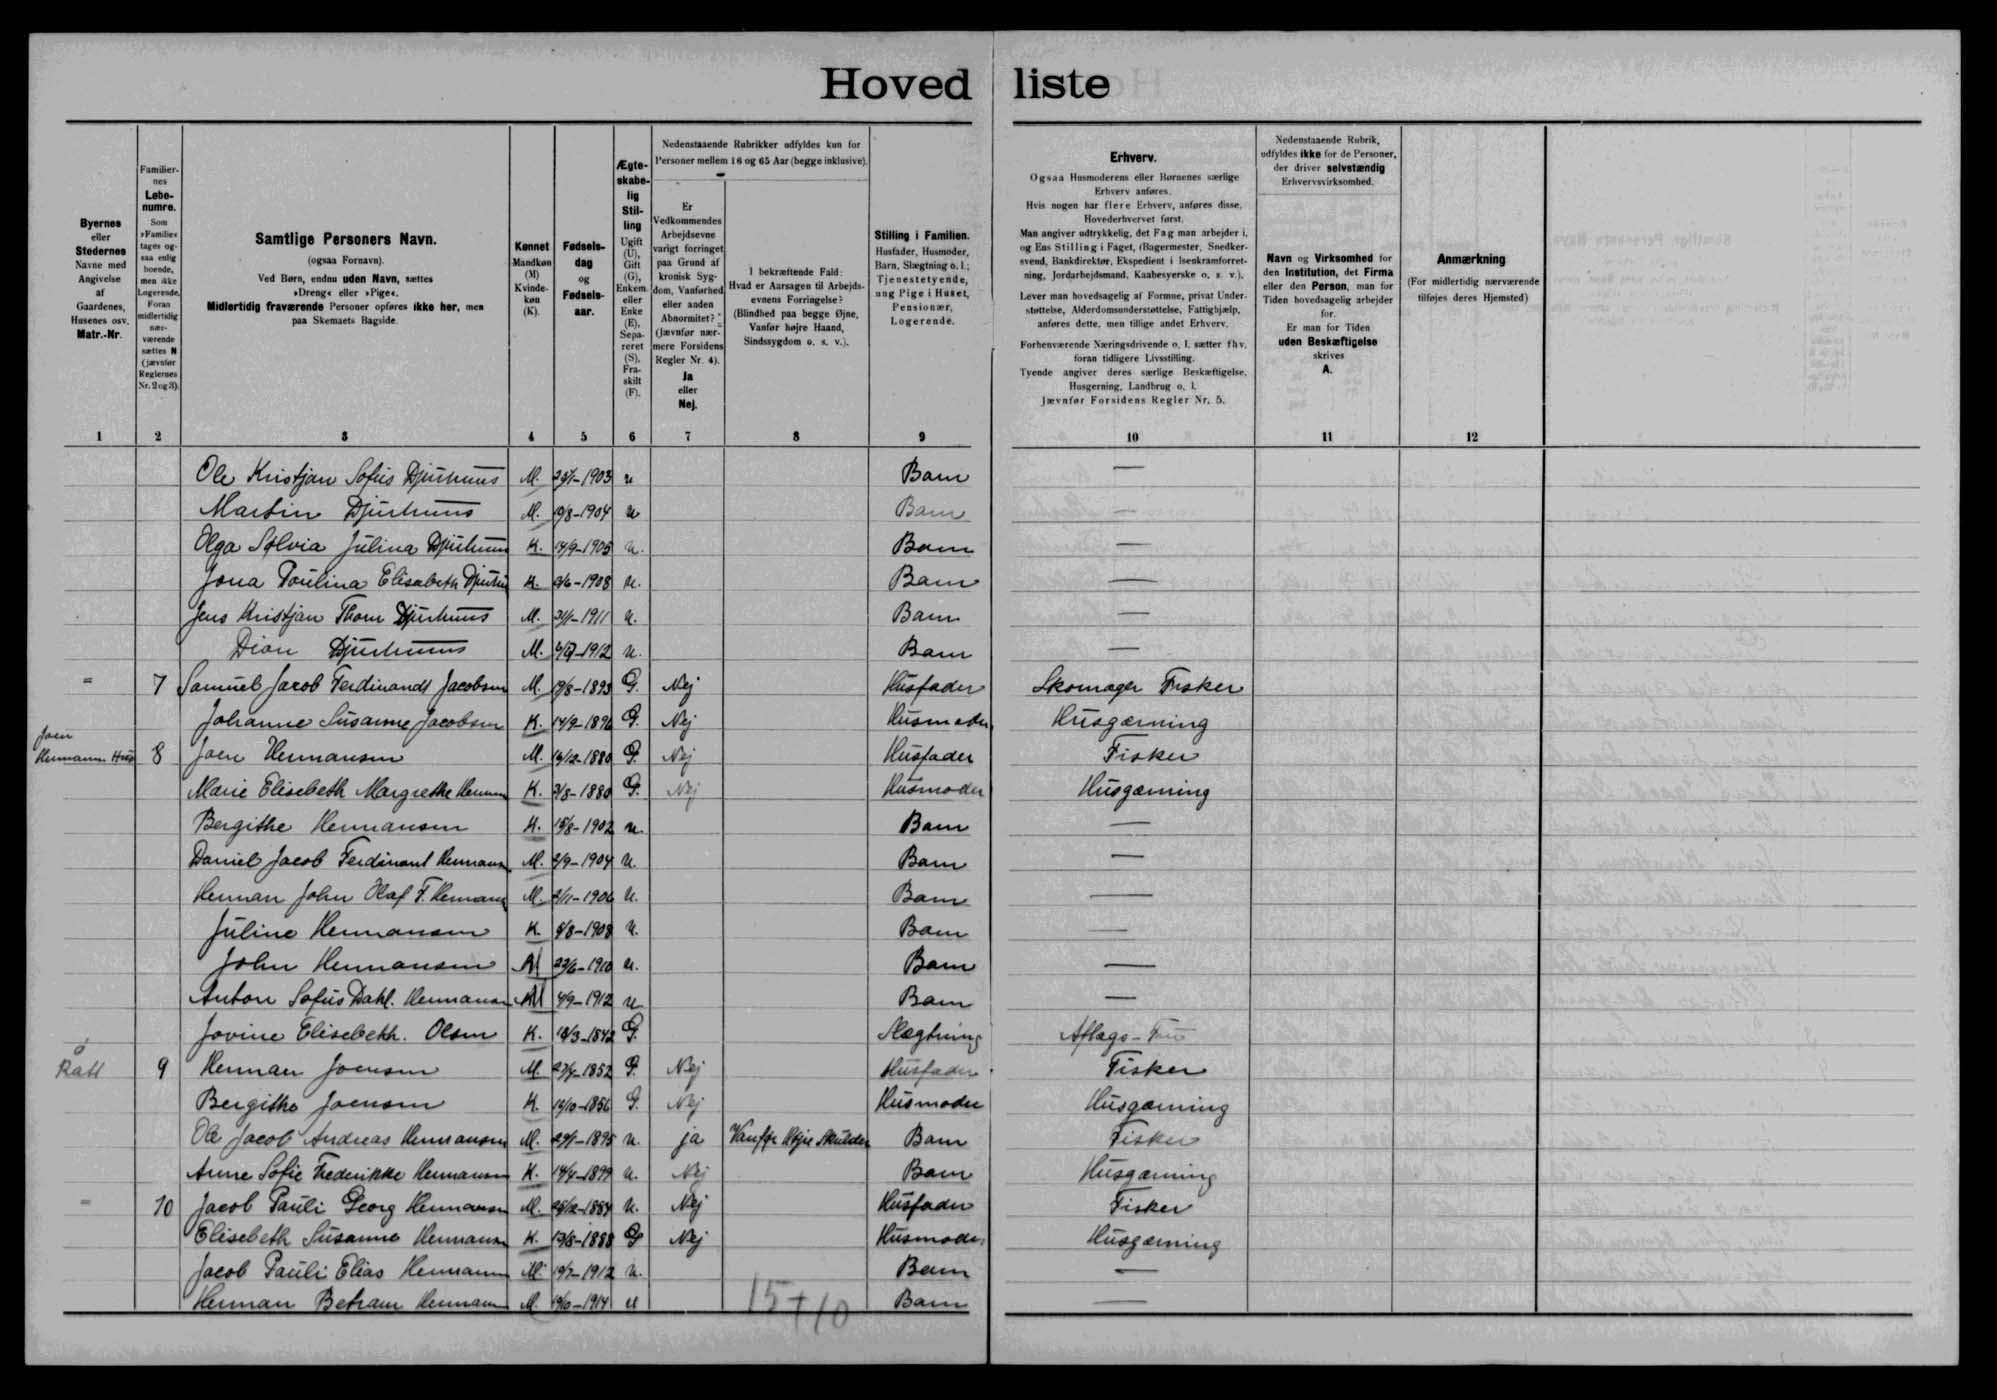 Hovedliste
Byernes eller Stedernes Navne med Angivelse af Gaardenes, Husenes osv. Matr.-Nr.
Familiernes Løbenumre. Som »Familie« tages ogsaa enlig boende, men ikke Logerende. Foran midlertidig nærværende sættes N (jævnfør Reglernes Nr. 2 og 3).
Samtlige Personers Navn. (ogsaa Fornavn). Ved Børn, endnu uden Navn, sættes »Dreng« eller »Pige«. Midlertidig fraværende Personer opføres ikke her, men paa Skemaets Bagside.
Kønnet Mandkøn (M) Kvindekøn (K).
Fødselsdag og Fødselsaar.
Ægteskabelig Stilling Ugift (U), Gift (G), Enkem. eller Enke (E), Separeret (S). Fraskilt (F).
Nedenstaaende Rubrikker udfyldes kun for Personer mellem 16 og 65 Aar (begge inklusive).
Er Vedkommendes Arbejdsevne varigt forringet paa Grund af kronisk Sygdom, Vanførhed eller anden Abnormitet? (Jævnfør nærmere Forsidens Regler Nr. 4). Ja eller Nej.
I bekræftende Fald: Hvad er Aarsagen til Arbejdsevnens Forringelse? (Blindhed paa begge Øjne, Vanfør højre Haand, Sindssygdom o. s. v.).
Stilling i Familien. Husfader, Husmoder, Barn, Slægtning o. l.; Tjenestetyende, ung Pige i Huset, Pensionær, Logerende.
Erhverv.
Ogsaa Husmoderens eller Børnenes særlige Erhverv anføres.
Hvis nogen har flere Erhverv, anføres disse, Hovederhvervet først.
Man angiver udtrykkelig, det Fag man arbejder i, og Ens Stilling i Faget, (Bagermester, Snedkersvend, Bankdirektør, Ekspedient i Isenkramforretning, Jordarbejdsmand, Kaabesyerske o. s. v.).
Lever man hovedsagelig af Formue, privat Understøttelse, Alderdomsunderstøttelse, Fattighjælp, anføres dette, men tillige andet Erhverv.
Forhenværende Næringsdrivende o. l. sætter fhv. foran tidligere Livsstilling.
Tyende angiver deres særlige Beskæftigelse, Husgerning, Landbrug o. l.
Jævnfør Forsidens Regler Nr. 5.
Nedenstaaende Rubrik, udfyldes ikke for de Personer, der driver selvstændig Erhvervsvirksomhed.
Navn og Virksomhed for den Institution, det Firma eller den Person, man for Tiden hovedsagelig arbejder for.
Er man for Tiden uden Beskæftigelse skrives A.
Anmærkning (For midlertidig nærværende tilføjes deres Hjemsted)
1 2 3 4 5 6 7 8 9 10 11 12
Ole Kristjan Sofus Djurhuus M. 1903 u Barn —
Martin Djurhuus M. 19/8-1904 u Barn —
Olga Sylvia Julina Djurhuus K. 14/9-1905 u. Barn —
Jona Poulina Elisabeth K. 1908 u. Barn —
Jens Kristjan Thom Djurhuus M. 1911 u. Barn —
Dion Djurhuus M. 1912 u. Barn —
" 7 Samuel Jacob Ferdinandt Jacobsen M. 19/8-1893 G. Nej Husfader Skomager Fisker
Johanne Susanne Jacobsen K. 14/9-1896 G. Nej Husmoder Husgærning
Joen
Hermanns. Hus 8 Joen Hermansen M. 16/12-1880 G. Nej Husfader Fisker
Marie Elisebeth Margrethe K. 3/8-1880 G. Nej Husmoder Husgærning
Bergithe Hermansen K. 15/8-1902 u. Barn —
Daniel Jacob Ferdinant Hermans M. 2/9-1904 u. Barn —
Herman John Olaf F. Hermans M. 2/11-1906 u. Barn —
Juline Hermansen K. 8/8-1908 u. Barn —
John Hermansen M 23/6-1910 u. Barn —
Anton Sofus Dahl. Hermansen M 4/9-1912 u Barn —
Jovine Elisebeth. Olsen K. 18/3-1842 G. Slægtning Aflags-
9 Herman Joensen M. 1852 G. Nej Husfader Fisker
Bergithe Joensen K. 12/10-1856 G. Nej Husmoder Husgærning
Ole Jacob Andreas Hermansen M. 1895 u. ja Vanfør Højre Skulder Barn Fisker
Anne Sofie Frederikke Hermansen K. 14/4-1899 u. Nej Barn Husgærning
" 10 Jacob Pauli Georg Hermansen M. 25/12-1884 u. Nej Husfader Fisker
Elisebeth Susanne Hermansen K. 13/8-1888 G Nej Husmoder Husgærning
Jacob Pauli Elias Hermansen M. 1912 u. Barn —
Herman Betram Hermans M. 19/10-1914 u Barn —
15+10